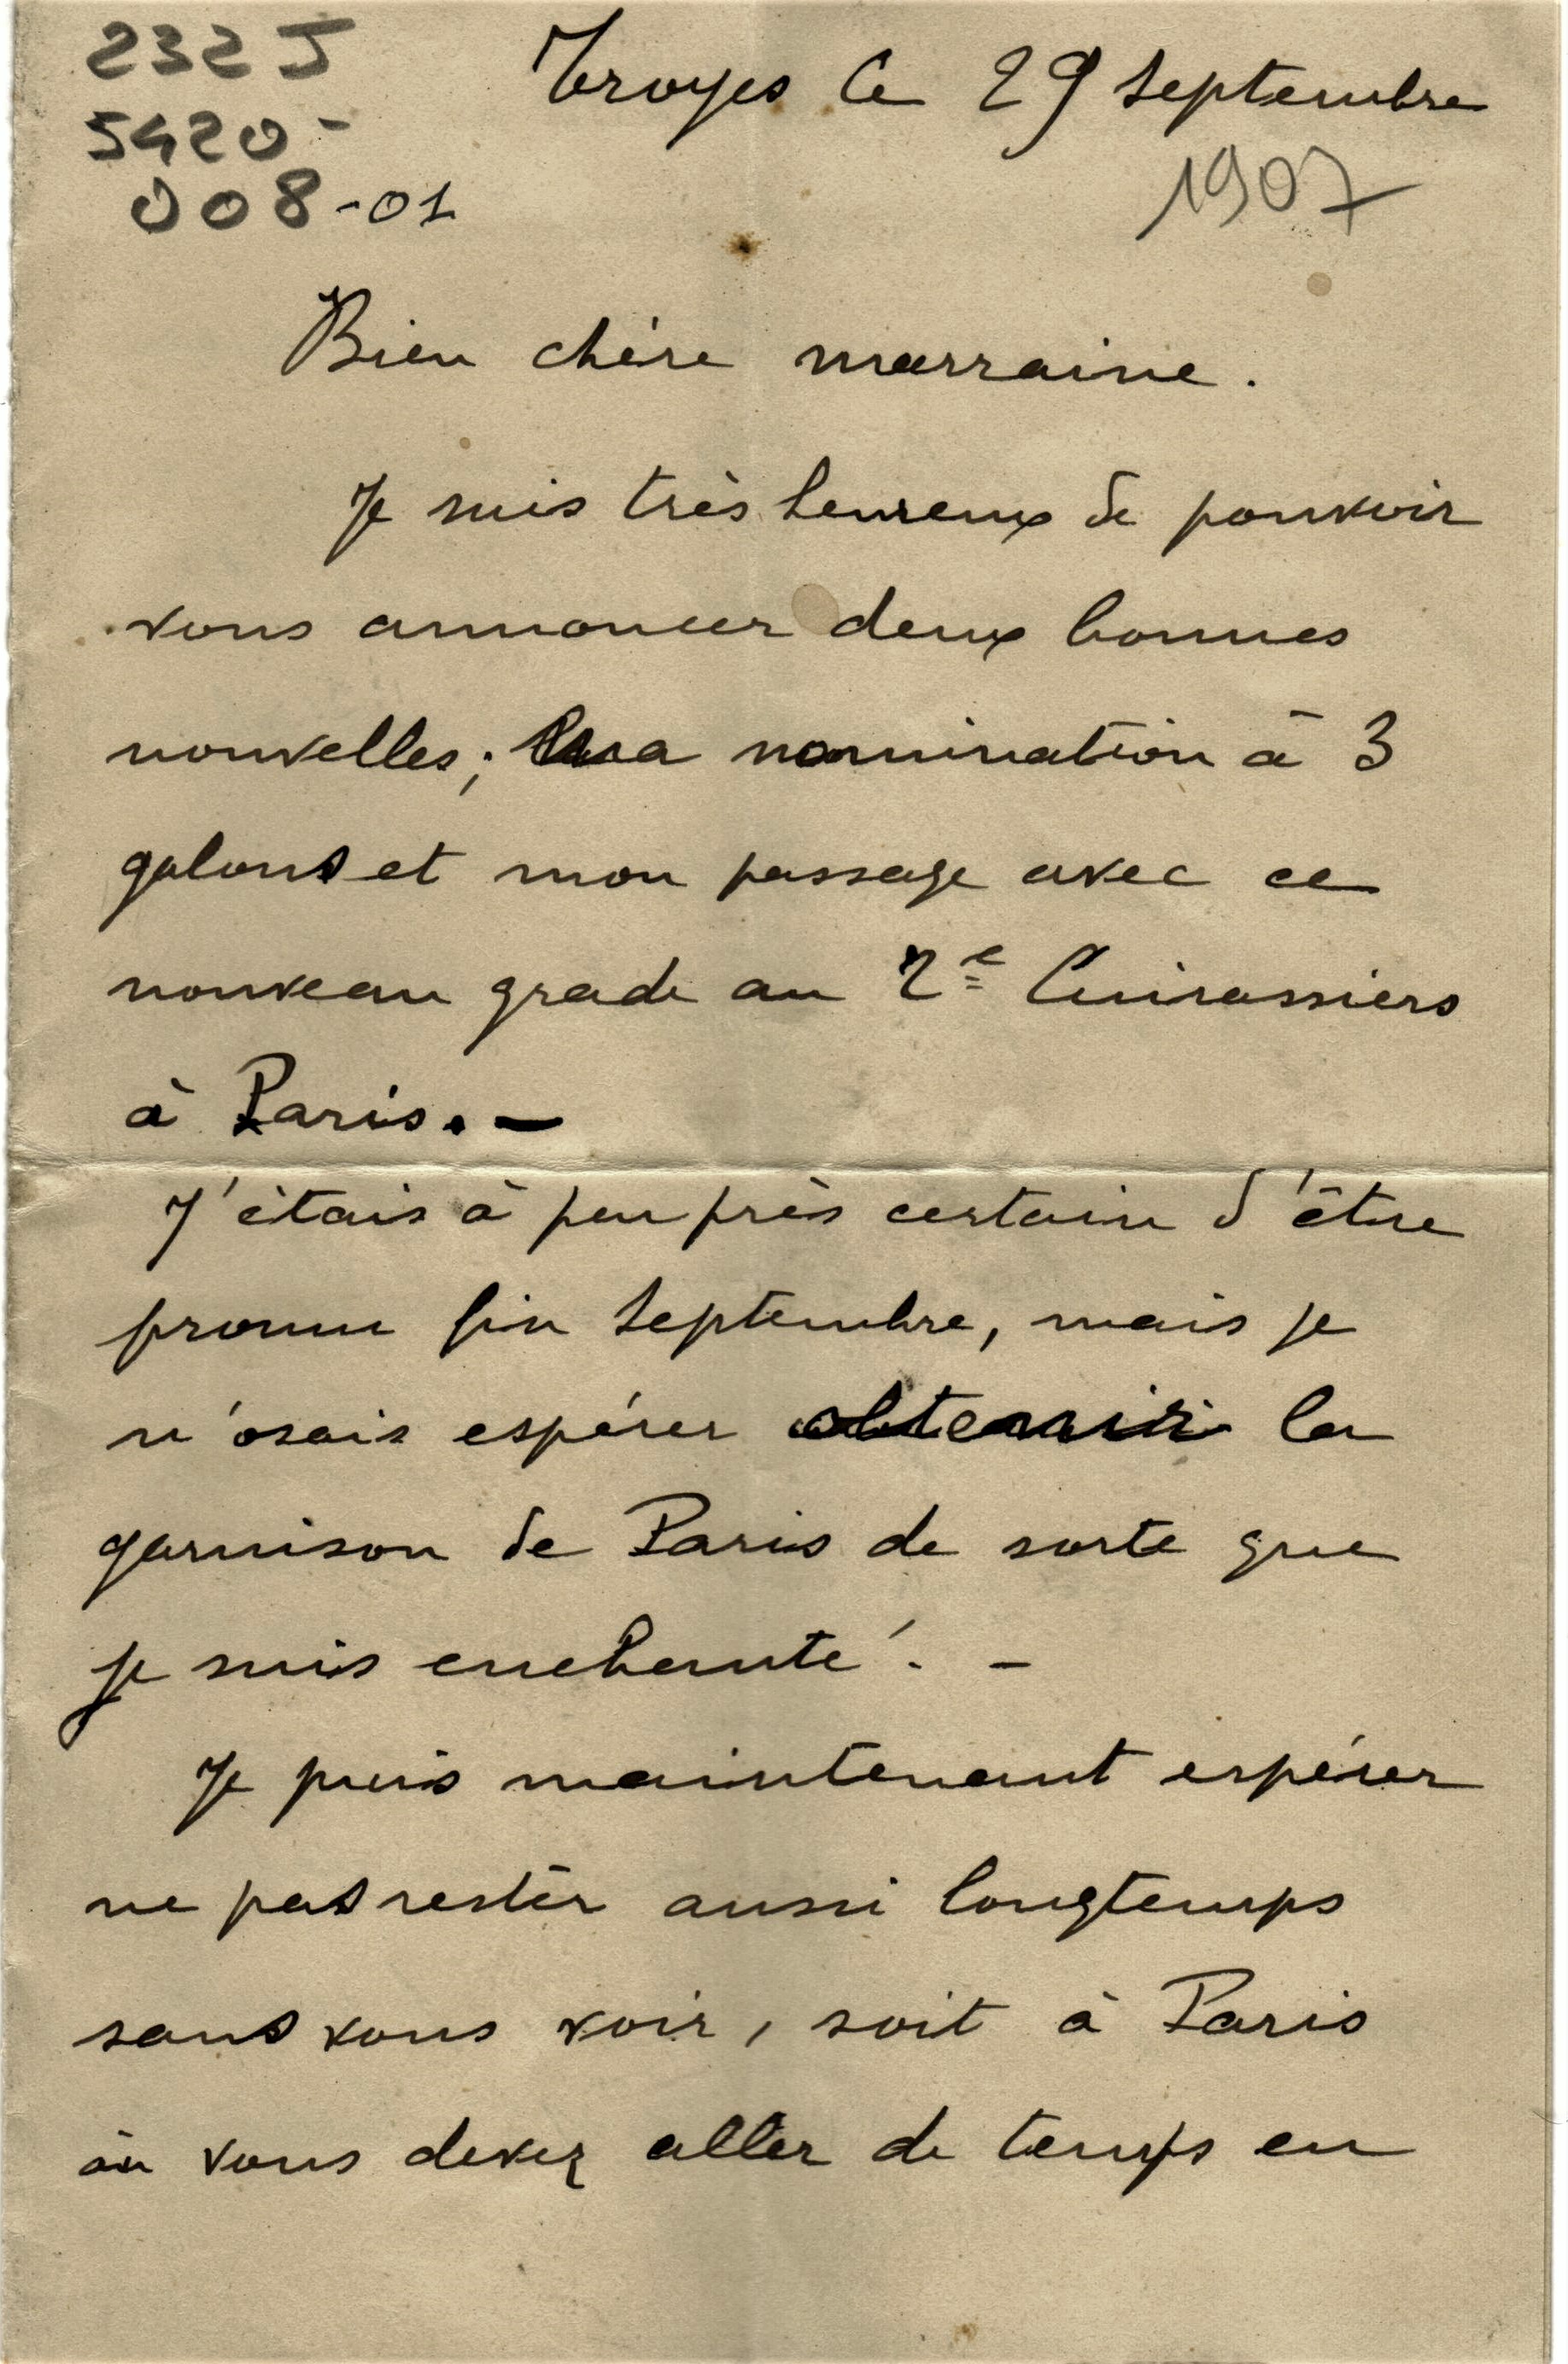 232 J
5420-
008-01
Troyes le 29 Septembre
1907
Bien chère marraine.
Je suis très heureux de pouvoir
vous annoncer deux bonnes
nouvelles; ma nomination à 3
galons et mon passage avec ce
nouveau grade au 2e Cuirassiers
à Paris. -
J'étais à peu près certain d'être
promu fin Septembre, mais je
n'osais espérer obtenir la
garnison de Paris de sorte que
je suis enchanté. -
Je puis maintenant espérer
ne pas rester aussi longtemps
sans vous voir, soit à Paris
où vous devez aller de temps en